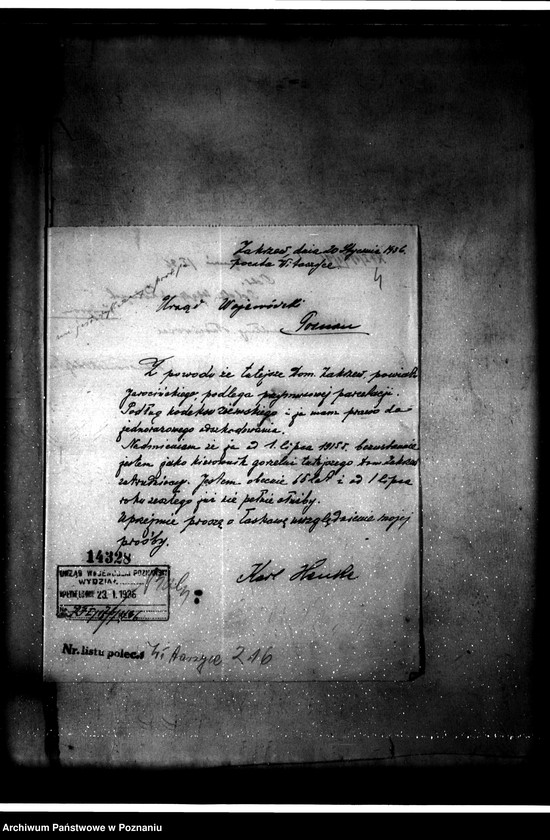 Zakrzew, dnia 20 Stycznia 1936.
poczta Witaszyce
4
Urząd Wojewódzki
Poznań
Z powodu że tutejsze Dom. Zakrzew, powiatu
Jarocińskiego, podlega przymusowej parcelacji.
Podług kodeksu ziemskiego i ja mam prawo do
jednorazowego odszkodowania.
Nadmieniam że ja od 1. lipca 1915 r. bezustannie
jestem jako kierownik gorzelni tutejszego Dom. Zakrzew
zatrudniony. Jestem obecnie 65 lat i od 1 lipca
roku zeszłego już nie pełnię służby.
Uprzejmie proszę o łaskawe uwzględnienie mojej
prośby.
14328
Karl Henke
URZĄD WOJEWÓDZKI POZNAŃSKI
WYDZIAŁ
WPŁYNĘŁO DNIA 23. I. 1936
Nr. listu polec.: Witaszyce 216
Archiwum Państwowe w Poznaniu